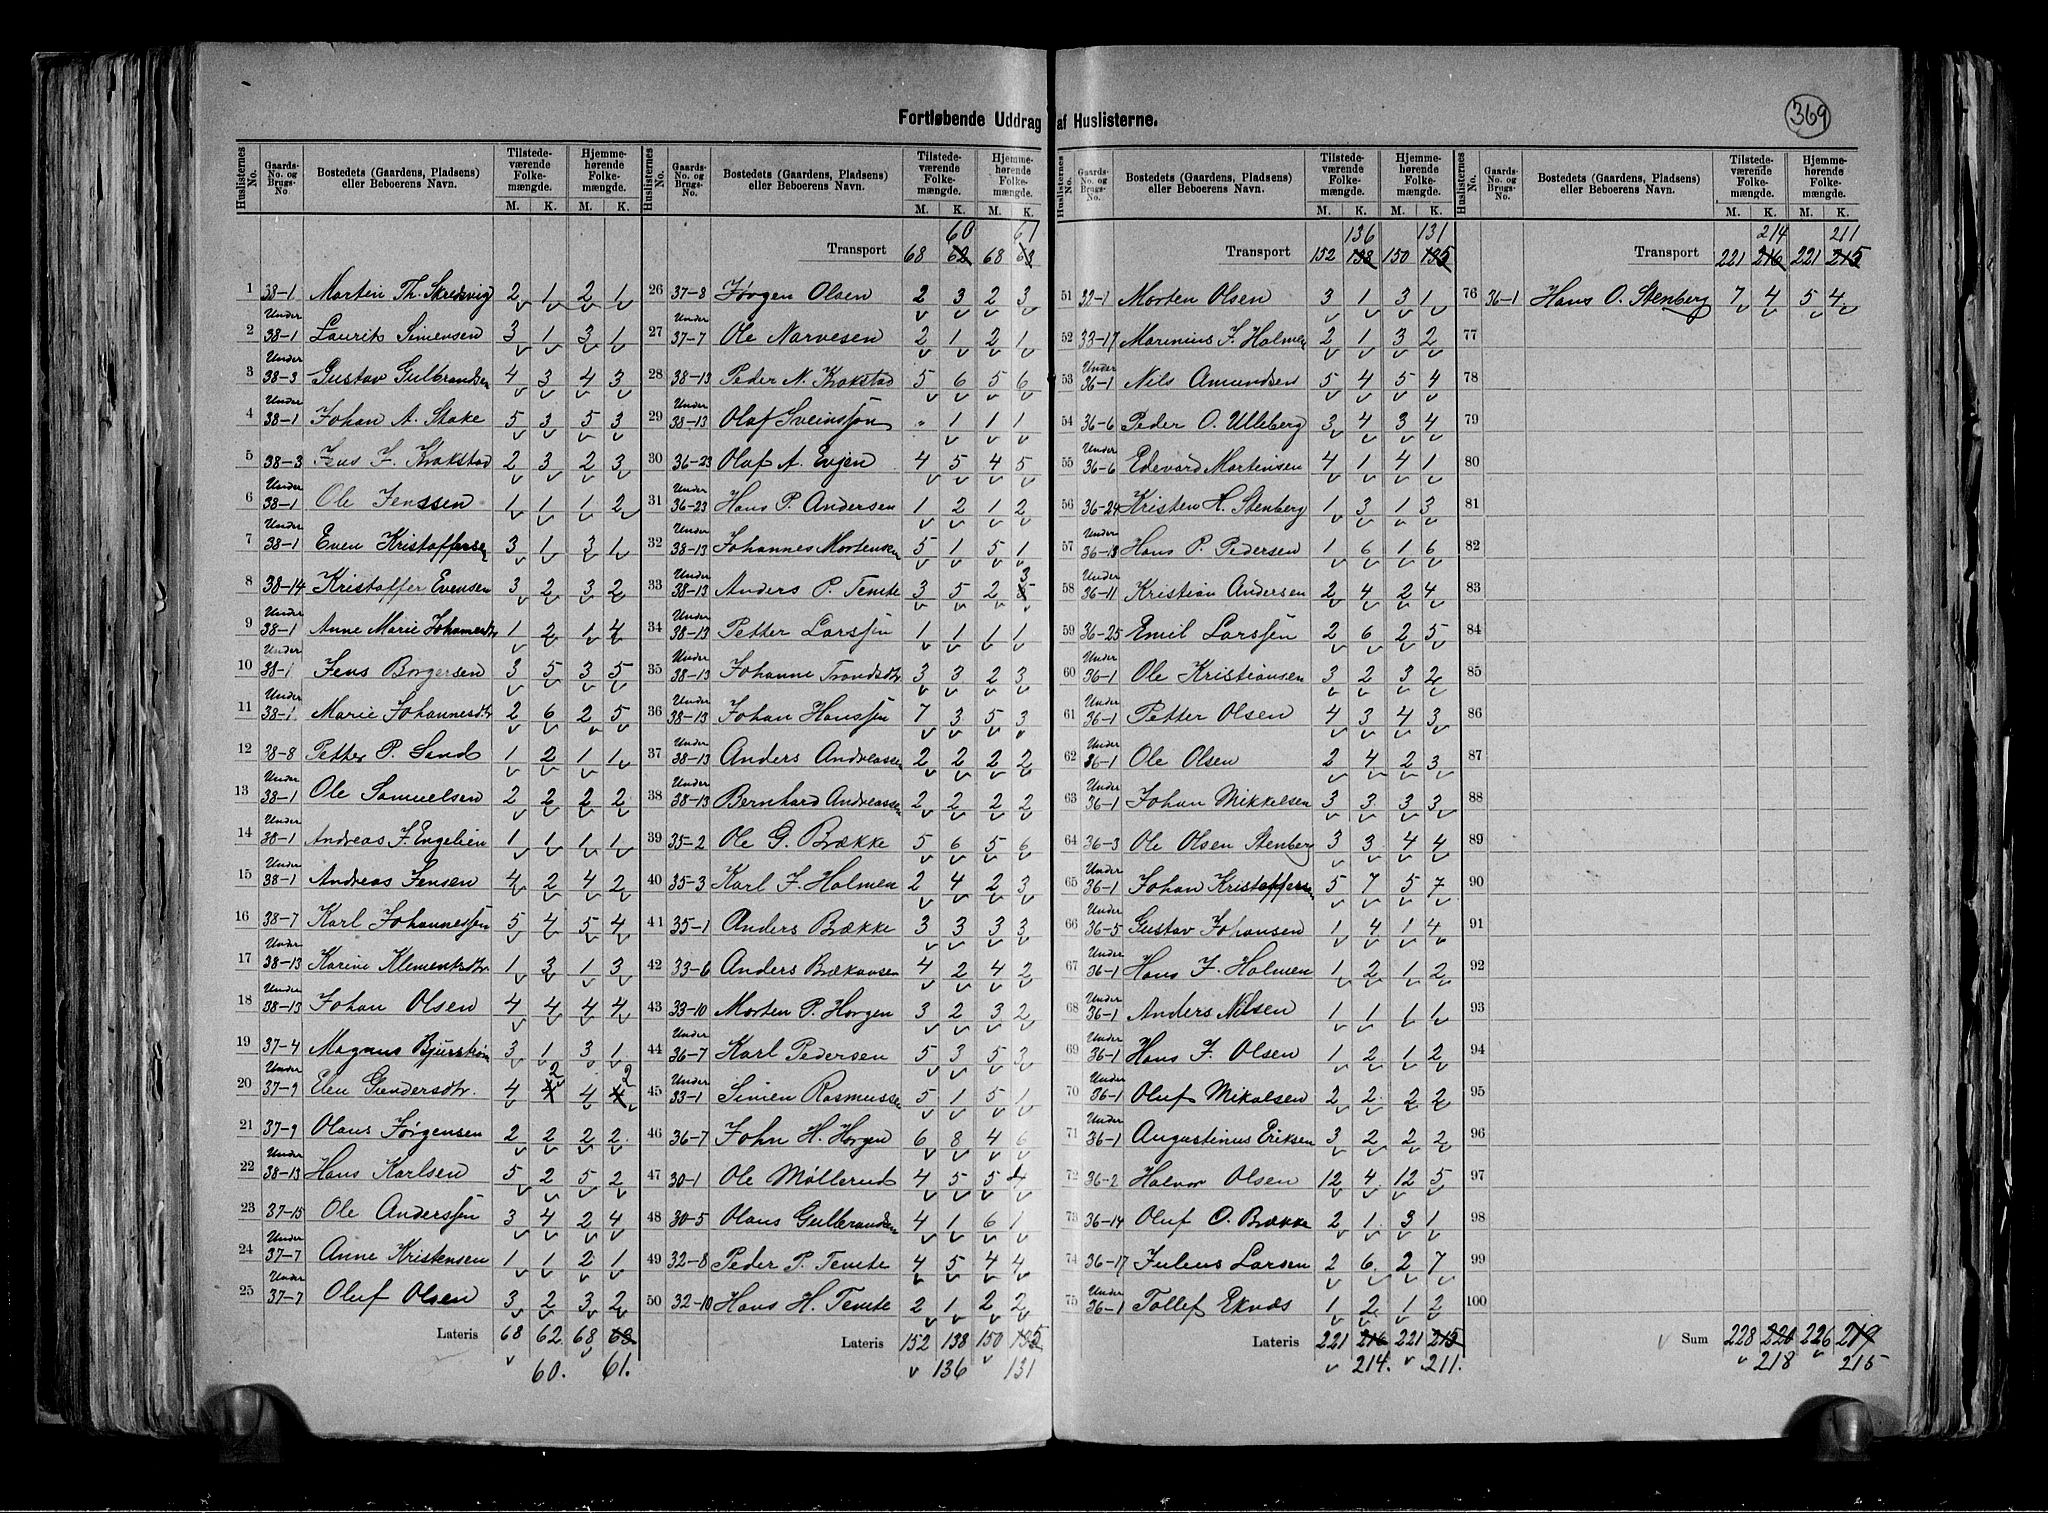 Fortløbende Uddrag af Huslisterne.
369
Huslisternes No. Gaards-No. og Brugs-No. Bostedets (Gaardens, Pladsens) eller Beboerens Navn. Tilstedeværende Folkemængde. M. K. Hjemmehørende Folkemængde. M. K.
1 38-1 Martin Th. Skredsvig 2 1 2 1
2 Under 38-1 Laurits Simensen 3 1 3 1
3 Under 38-3 Gustav Gulbrandsen 4 3 4 3
4 Under 38-1 Johan A. Stake 5 3 5 3
5 38-3 Jens J. Krokstad 2 3 2 3
6 Under 38-1 Ole Jenssen 1 1 1 2
7 Under 38-1 Even Kristoffersen 3 1 3 1
8 38-14 Kristoffer Evensen 3 2 3 2
9 Under 38-1 Anne Marie Johannesdtr 1 2 1 4
10 Under 38-1 Jens Borgersen 3 5 3 5
11 Under 38-1 Marie Johannesdtr 2 6 2 5
12 38-8 Petter P. Sand 1 2 1 1
13 Under 38-1 Ole Samuelsen 2 2 2 2
14 Under 38-1 Andreas J. Engelien 1 1 1 1
15 Under 38-1 Andreas Jensen 4 2 4 2
16 38-7 Karl Johannessen 5 4 5 4
17 Under 38-13 Karine Klementsdtr 1 3 1 3
18 Under 38-13 Johan Olsen 4 4 4 4
19 37-4 Magnus Bjurstrøm 3 1 3 1
20 Under 37-9 Elen Gundersdtr. 4 2 4 2
21 37-9 Olaus Jørgensen 2 2 2 2
22 Under 38-13 Hans Karlsen 5 2 5 2
23 37-15 Ole Anderssen 3 4 2 4
24 Under 37-7 Anne Kristensen 1 1 2 1
25 Under 37-7 Oluf Olsen 3 2 3 2
Lateris 68 62 68 63
60. 61.
Huslisternes No. Gaards-No. og Brugs-No. Bostedets (Gaardens, Pladsens) eller Beboerens Navn. Tilstedeværende Folkemængde. M. K. Hjemmehørende Folkemængde. M. K.
60 61
Transport 68 62 68 63
26 37-8 Jørgen Olsen 2 3 2 3
27 Under 37-7 Ole Narvesen 2 1 2 1
28 38-13 Peder N. Krokstad 5 6 5 6
29 Under 38-13 Olaf Sveinssøn " 1 1 1
30 36-23 Olaf A. Evjen 4 5 4 5
31 Under 36-23 Hans P. Andersen 1 2 1 2
32 Under 38-13 Johannes Mortensen 5 1 5 1
33 Under 38-13 Anders P. Temte 3 5 2 3
34 Under 38-13 Petter Larssen 1 1 1 1
35 Under 38-13 Johanne Trondsdtr 3 3 2 3
36 Under 38-13 Johan Hanssen 7 3 5 3
37 Under 38-13 Anders Andreassen 2 2 2 2
38 Under 38-13 Bernhard Andreassen 2 2 2 2
39 35-2 Ole G. Brække 5 6 5 6
40 35-3 Karl J. Holmen 2 4 2 3
41 35-1 Anders Brække 3 3 3 3
42 33-6 Anders Brækausen 4 2 4 2
43 33-10 Morten P. Horgen 3 2 3 2
44 Under 36-7 Karl Pedersen 5 3 5 3
45 Under 33-1 Simen Rasmussen 5 1 5 1
46 36-7 John H. Horgen 6 8 4 6
47 30-1 Ole Møllerud 4 5 5 4
48 30-5 Olaus Gulbrandsen 4 1 6 1
49 32-8 Peder P. Temte 4 5 4 4
50 32-10 Hans H. Temte 2 1 2 2
Lateris 152 138 150 135
136 131
Huslisternes No. Gaards-No. og Brugs-No. Bostedets (Gaardens, Pladsens) eller Beboerens Navn. Tilstedeværende Folkemængde. M. K. Hjemmehørende Folkemængde. M. K.
136 131
Transport 152 138 150 135
51 32-1 Morten Olsen 3 1 3 1
52 33-17 Marinius J. Holmen 2 1 3 2
53 Under 36-1 Nils Amundsen 5 4 5 4
54 36-6 Peder O. Ulleberg 3 4 3 4
55 Under 36-6 Edevard Mortensen 4 1 4 1
56 36-24 Kristen H. Stenberg 1 3 1 3
57 Under 36-13 Hans P. Pedersen 1 6 1 6
58 Under 36-11 Kristian Andersen 2 4 2 4
59 36-25 Emil Larssen 2 6 2 5
60 Under 36-1 Ole Kristiansen 3 2 3 2
61 Under 36-1 Petter Olsen 4 3 4 3
62 Under 36-1 Ole Olsen 2 4 2 3
63 Under 36-1 Johan Mikkelsen 3 3 3 3
64 36-3 Ole Olsen Stenberg 3 3 4 4
65 Under 36-1 Johan Kristoffersen 5 7 5 7
66 Under 36-5 Gustav Johansen 1 4 1 4
67 Under 36-1 Hans J. Holmen 1 2 1 2
68 Under 36-1 Anders Nilsen 1 1 1 1
69 Under 36-1 Hans J. Olsen 1 2 1 2
70 Under 36-1 Oluf Mikalsen 2 2 2 2
71 Under 36-1 Augustinus Eriksen 3 2 2 2
72 36-2 Halvor Olsen 12 4 12 5
73 36-14 Oluf O. Brække 2 1 3 1
74 36-17 Julius Larsen 2 6 2 7
75 Under 36-1 Tollef Eknæs 1 2 1 2
Lateris 221 216 221 215
214. 211.
Huslisternes No. Gaards-No. og Brugs-No. Bostedets (Gaardens, Pladsens) eller Beboerens Navn. Tilstedeværende Folkemængde. M. K. Hjemmehørende Folkemængde. M. K.
214 211
Transport 221 216 221 215
76 36-1 Hans O. Stenberg 7 4 5 4
77
78
79
80
81
82
83
84
85
86
87
88
89
90
91
92
93
94
95
96
97
98
99
100
Sum 228 220 226 219
218 215